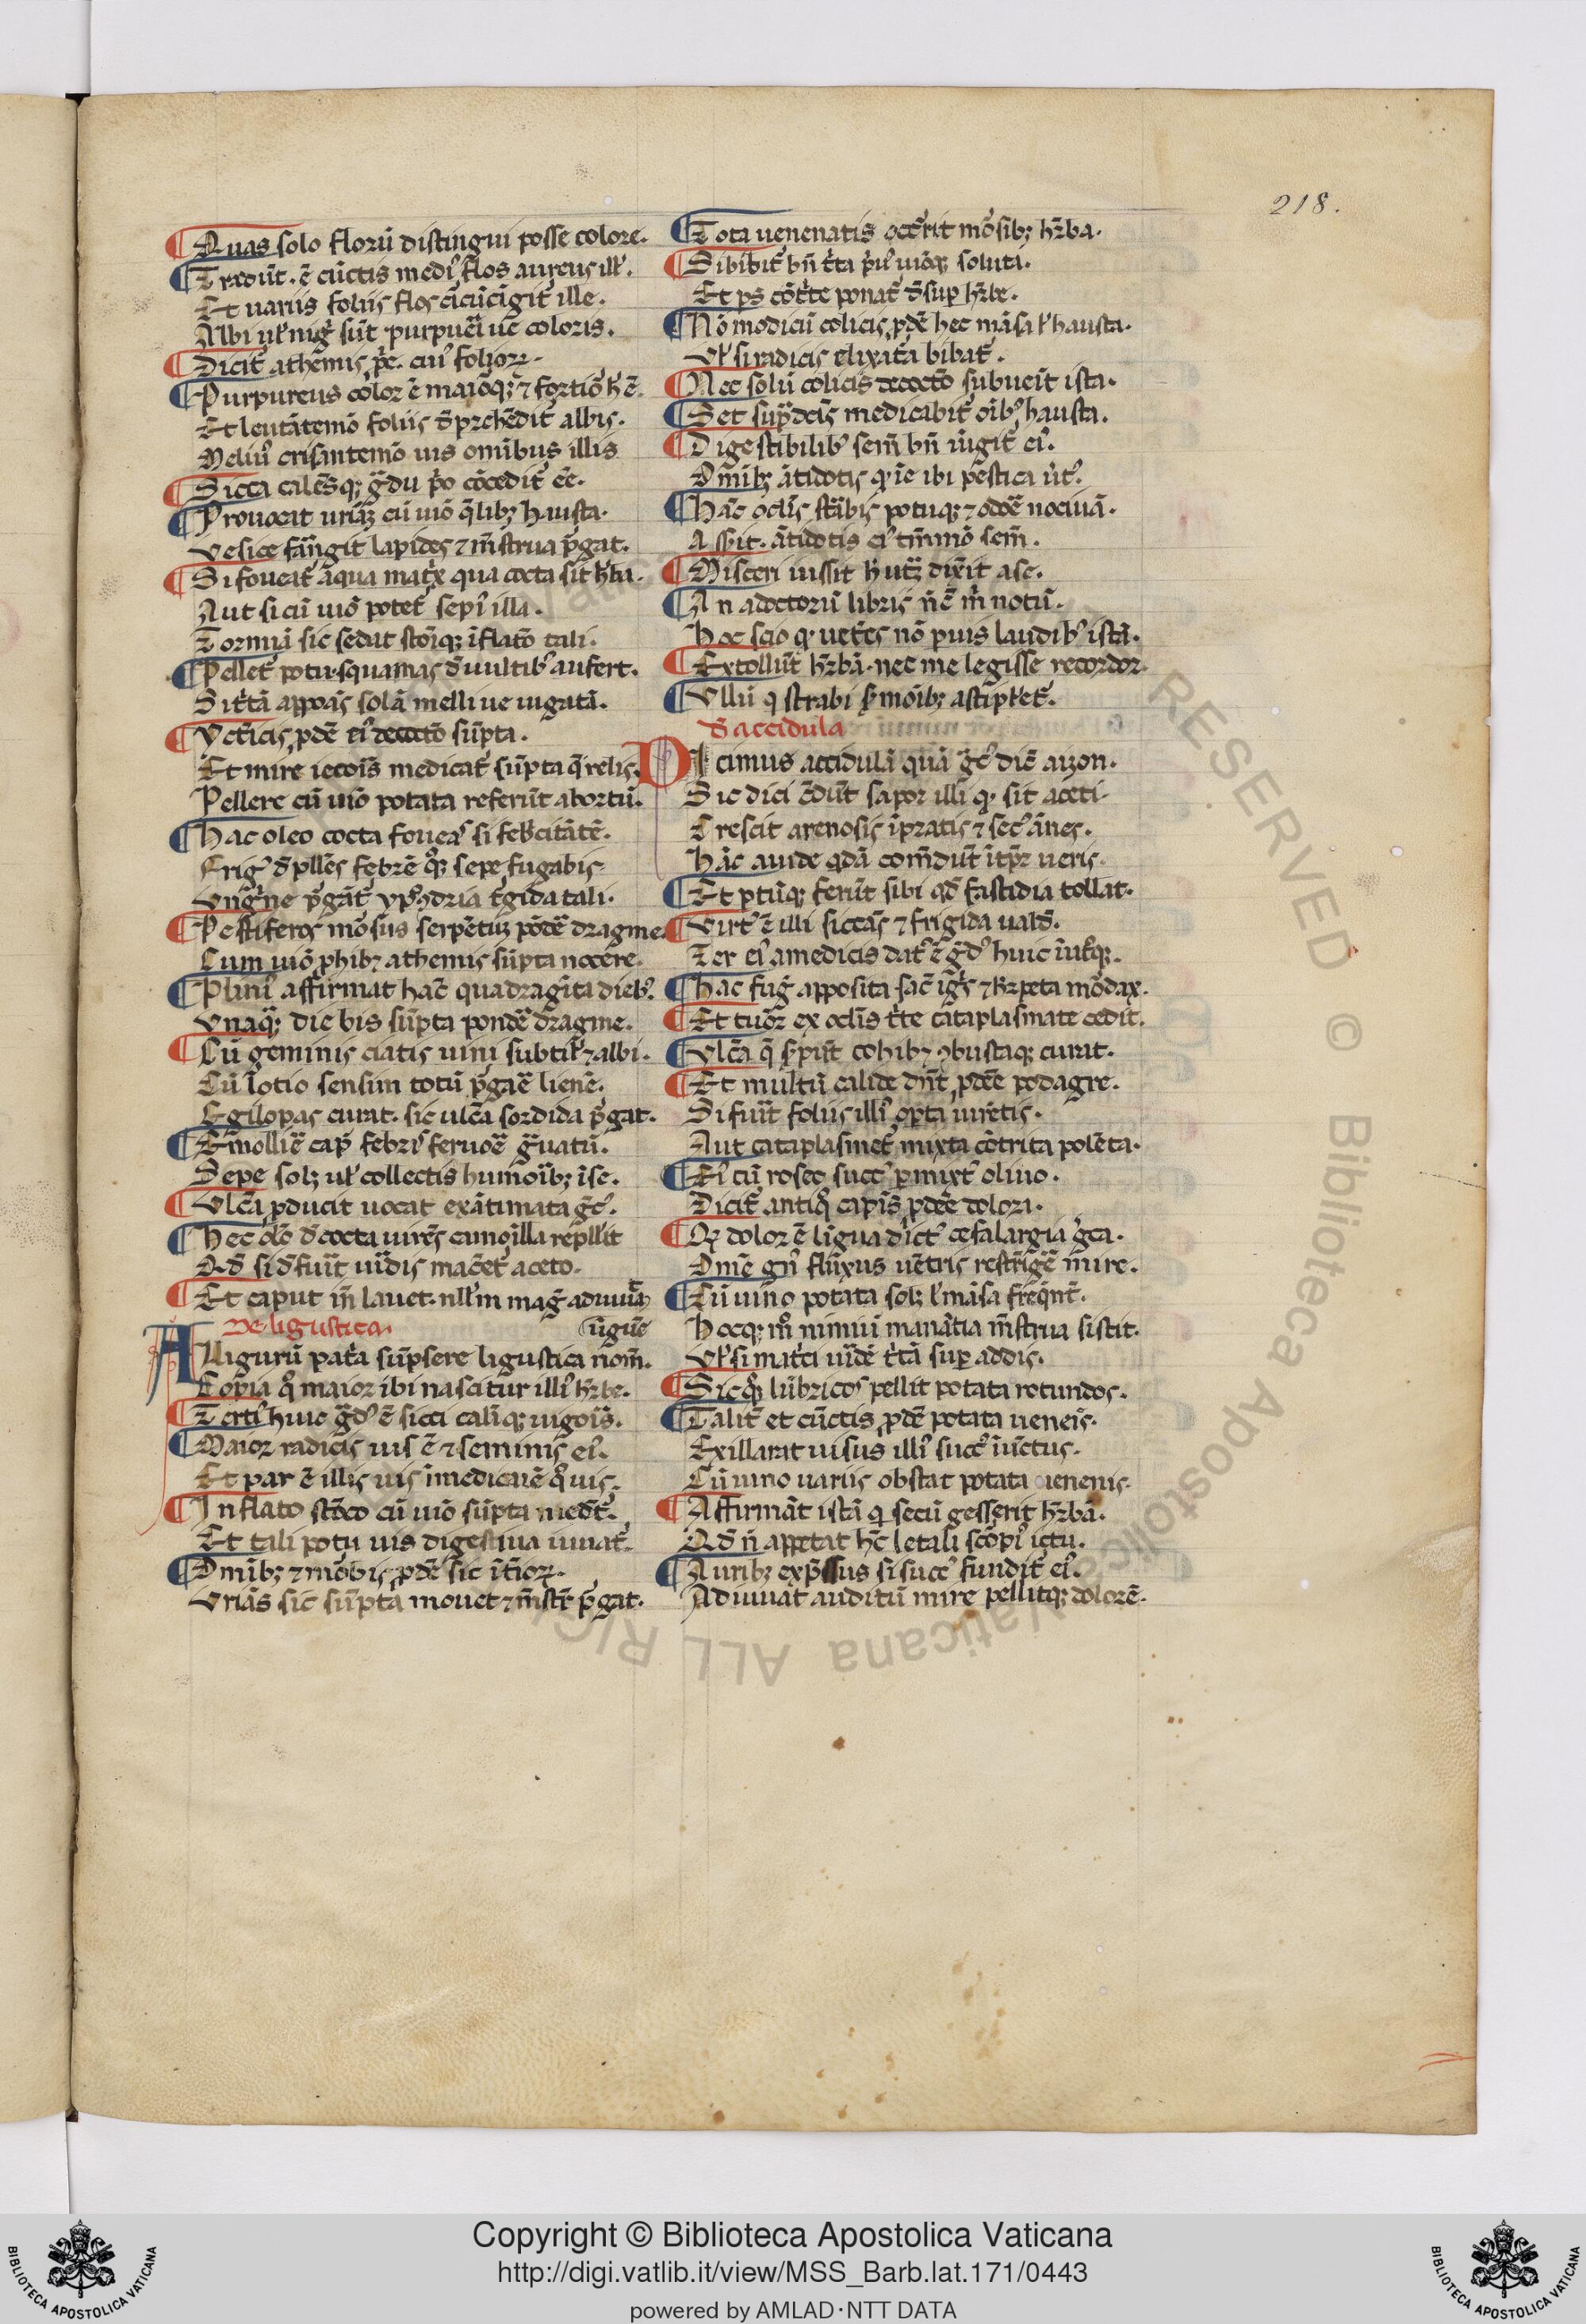 218.
Quas solo florū distingui posse colore.
Tradūt. ē cūctis medi᷒ flos aureus ill᷒.
Et uariis foliis flos cīcūcīgit ille.
Albi ul nigͥ sūt purpuei ue coloris.
Dicit athemis
Purpureus color ē maiorq; ⁊ fortior h̄ ē.
foliis dprehēdit albis.
Meliu᷒ crisantemō uis omībus illis
Sicca calēsq; gdu pͥo cōcedit eē.
Prouocat urinā cū uiō qlib; hausta.
Vesice frāngit lapides ⁊ mēstrua pgat.
Si foueat᷒ aqua matͥx qua cocta sit hba.
Aut si cū uiō potet᷒ sepi᷒ illa.
Tormīa sic sedat stōiq; īflatō tali.
Pellet᷒ potu. squamas d uultib᷒ aufert.
Si tͥtā appoās solā melli ue iugatā.
Yctͥicis pdē ei᷒ decoctō sūpta.
Et mire iecoīs medicat᷒ sūpta qrelis.
Pellere cū uiō potata referūt abortū.
Hac oleo cocta foueas si febͥcitātē.
Frig᷒ dpllēs febrē qq; sepe fugabis.
tali.
Pestiferos mōsus serpētū; pōdē dragme.
Cum uiō phib; athemis sūpta nocere.
Plini᷒ affirmat hac quadragīta dieb᷒.
Vnaq; die bis sūpta pondē dragme.
Cū geminis ciatis uini subtil ⁊ albi.
Cū lotio sensim totū pgaē lienē.
Egilopas curat. sic ulcͣa sordida pgat.
Emolliē cap febrͥ feruoē gͣuatū.
Sepe sol; ul collectis humoīb; ise.
Ulcͣa pducit uocat exātimata gͨ.
Hec olō dcocta uirēs camoīlla repllit
Qd si dfuīt uiͥdis macēt aceto.
Et caput īn lauet. nllm mag adiuuͣ
De ligustica.
ūgūē
A Ligurū patͥa sūpsere ligustica nom̄.
Copia q maior ibi nascitur illi᷒ hrbe.
Terti᷒ huic gd᷒ ē sicci caliq; uigoīs.
Maior radicis uis ē ⁊ seminis ei᷒.
Et par ē illis uis ī medicīē quis.
Inflato stōco cū uiō sūpta medt᷒.
Et tali potu uis digestiua iuuat᷒.
Omīb; ⁊ mōbis pdē sic ītͥior.
Vriās sic sūpta mouet ⁊ mēstr pgat.
Tota uenenatis occrit mōsib; hrba.
Si bibit᷒ bn̄ tͥta uiōq; soluta.
Et ps cōtͥte ponat᷒ dsup hrbe.
Nō modicū colicis pdē hec māsa ul hausta.
Vl si radicis elixatͣa bibat᷒.
Nec solū colicis decoctō subueīt ista.
Set supdcīs medicabit᷒ oīb᷒ hausta.
Digestibilib᷒ sem̄ bn̄ iūgit᷒ ei᷒.
Omīb; ātidotis
Hāc oclis potuq; ⁊ odoē nociuā.
Assit. ātidotis
Misceri iussit
An a doctorū libris
Hoc scio q uetes nō puis laudib᷒ istā.
Extollūt hrbā. nec me legisse recordor.
Vllū q strabi smōib; astīplet᷒.
D accidula
Dicimus accidulā quā gͨ diē aizon.
Sic dici cdūt sapor illi q sit aceti.
Crescit arenosis ī pratis ⁊ sec᷒ āues.
Hāc auide qdā comdūt ītpr ueris.
Et ptūq; ferūt sibi qd fastidia tollat.
Virt᷒ ē illi siccās ⁊ frigida uald.
Ter ei᷒ a medicis dat᷒ ē gd᷒ huic
Hac fug apposita sac īgs ⁊ hrpeta mōdax.
Et tuor ex oclīs tͥte cataplasmate cedit.
Vlcͣa q spūt cohib; ⁊ ꝯbustaq; curat.
Et multū calide dnt pdeē podagre.
Si fuīt foliis illi᷒ opta uirētis.
Aut cataplasmet᷒ mixta cōtrita polēta.
Ei᷒ cū roseo succ᷒ pmixt᷒ oliuo.
Dicit᷒ antiq capīs pdeē dolori.
Q dolor ē ligua dict᷒ cefalargia gͨa.
Omē gn᷒ fluxus uētris restrīgē mire.
Cū uino potata sol; ul māsa freqnt᷒.
Hocq; mo nimiū manātia mēstrua sistit.
Vl si matͥci uiͥdē tͥtā sup addis.
Sic qq; lubricos pellit potata rotundos.
Talit᷒ et cūctis pdē potata ueneīs.
Exillarat uisus illi᷒ succ᷒ iūctus.
Cū uino uariis obstat potata uenenis.
Affirmāt istā q secū gesserit hrbā.
Qd n̄ appetat hc letali scōpi᷒ ictu.
Aurib; expssus si succ᷒ fundit᷒ ei᷒.
Adiuuat auditū mire pellitq; dolorē.
RESERVED © Biblioteca Apostolica Vaticana ALL RIGHTS
Copyright © Biblioteca Apostolica Vaticana
http://digi.vatlib.it/view/MSS_Barb.lat.171/0443
powered by AMLAD·NTT DATA
BIBLIOTECA APOSTOLICA VATICANA
BIBLIOTECA APOSTOLICA VATICANA